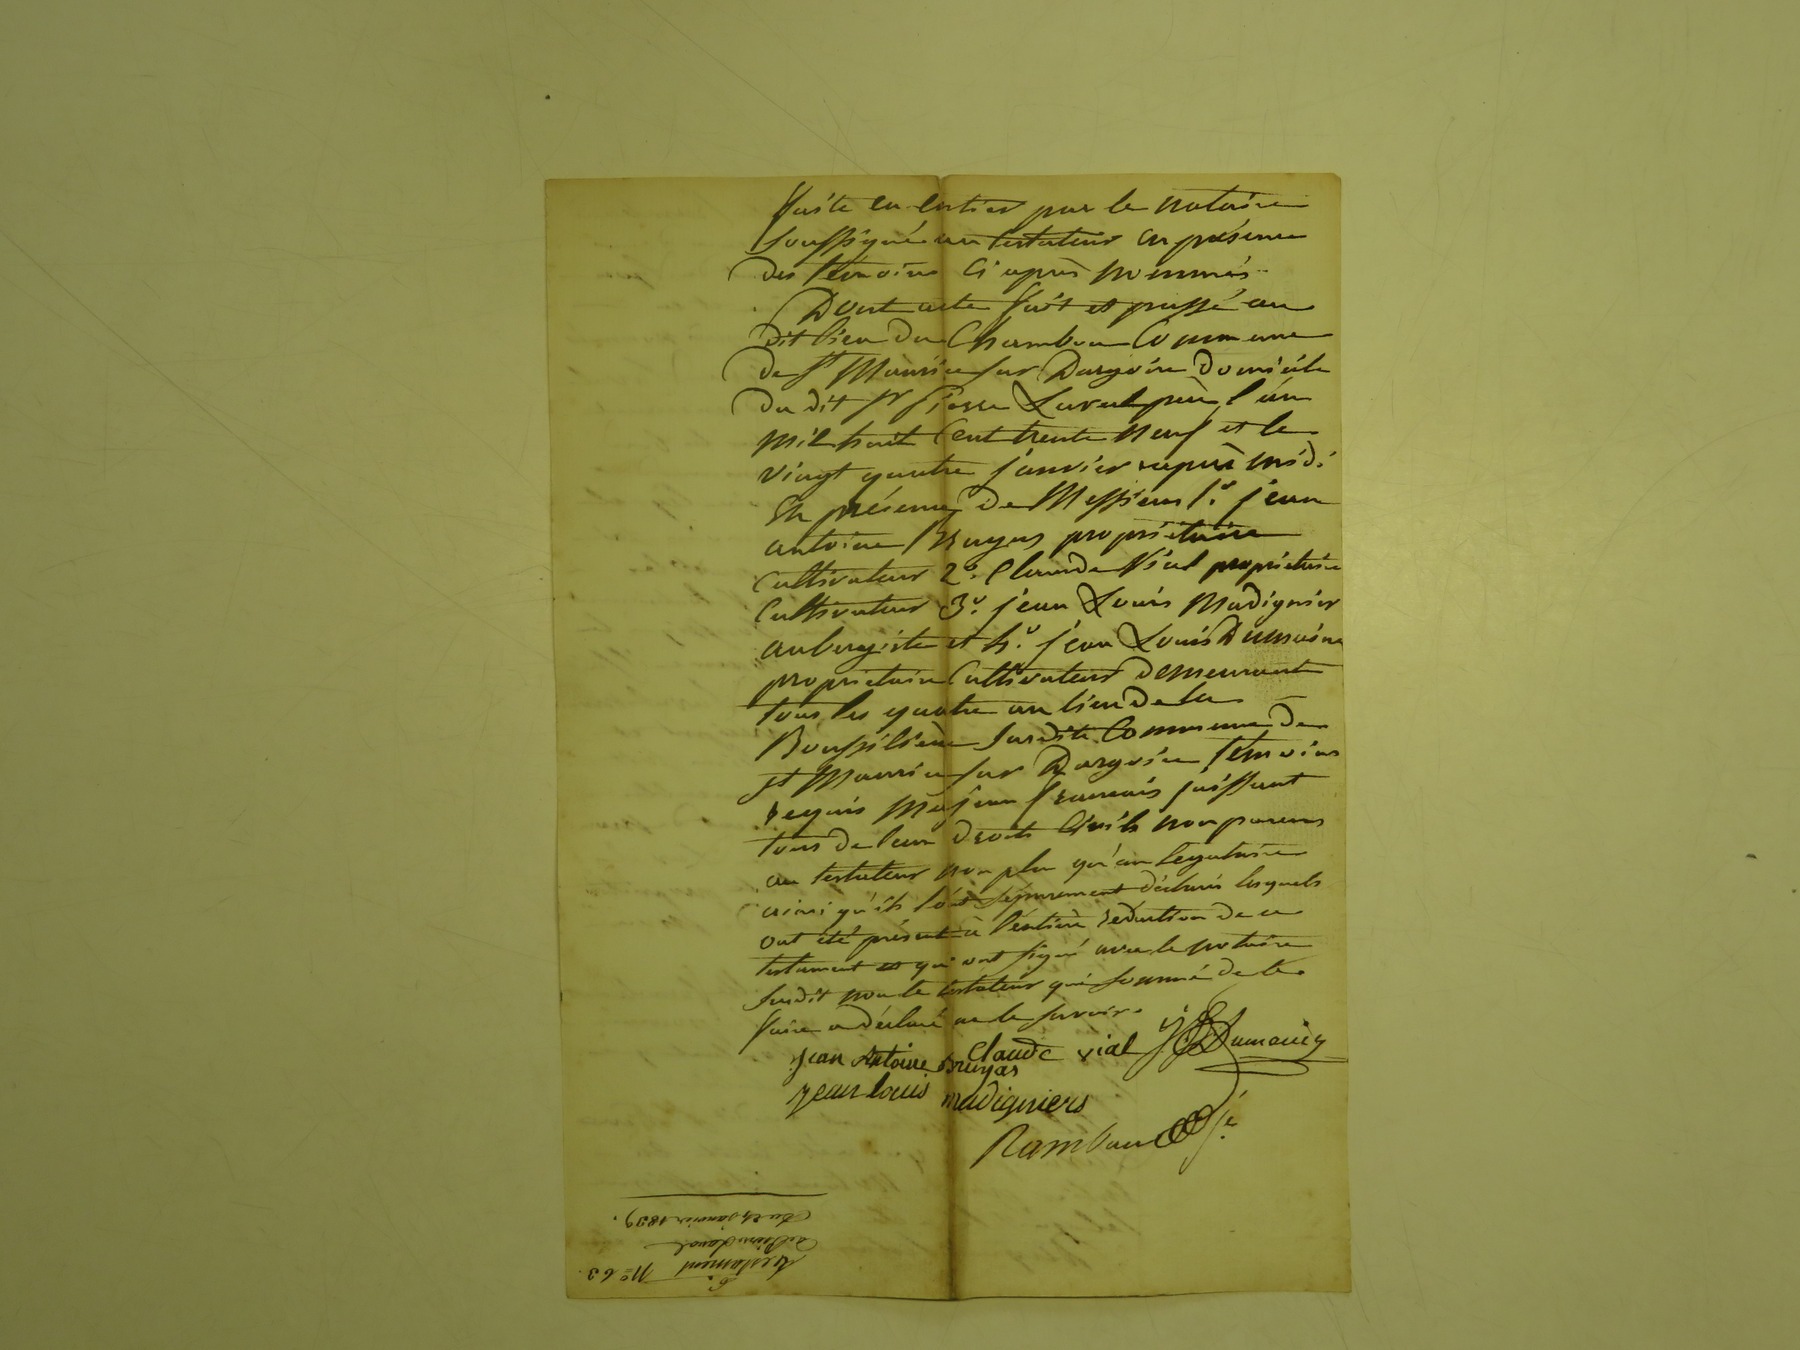 faite en entier par le notaire
soussigné au testateur en présence
des témoins ci après nommés.
Dont acte fait et passé au
dit lieu du Chambon Commune
de St Maurice sur Dargoire domicile
du dit Sr Pierre Laval père l'an
mil huit cent trente neuf et le
vingt quatre janvier après midi
En présence de Messieurs 1.º jean
antoine Bruyas propriétaire
cultivateur 2.º Claude Vial propriétaire
Cultivateur 3.º jean Louis Madignier
aubergiste et 4.º jean Louis Dumaine
propriétaire Cultivateur demeurant
tous les quatre au lieu de la
susdite Commune de
st Maurice sur Dargoire témoins
requis Majeurs français jouissant
tous de leur droits civils non parens
au testateur non plus qu'au légataire
ainsi qu'ils l'ont séparement déclaré lesquels
ont été présent à l'entière rédaction de ce
testament et qui ont signé avec le notaire
susdit non le testateur qui sommé de le
faire a déclaré ne le savoir.
jean Antoine Bruyas Claude vial
jean louis madigniers
Rambau
Nº 63
testament
de Pierre Laval
du 24 janvier 1839.